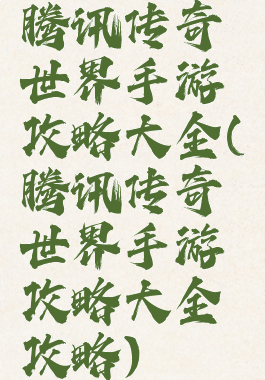 腾讯传奇
世界手游
攻略大全(
腾讯传奇
世界手游
攻略大全
攻略)